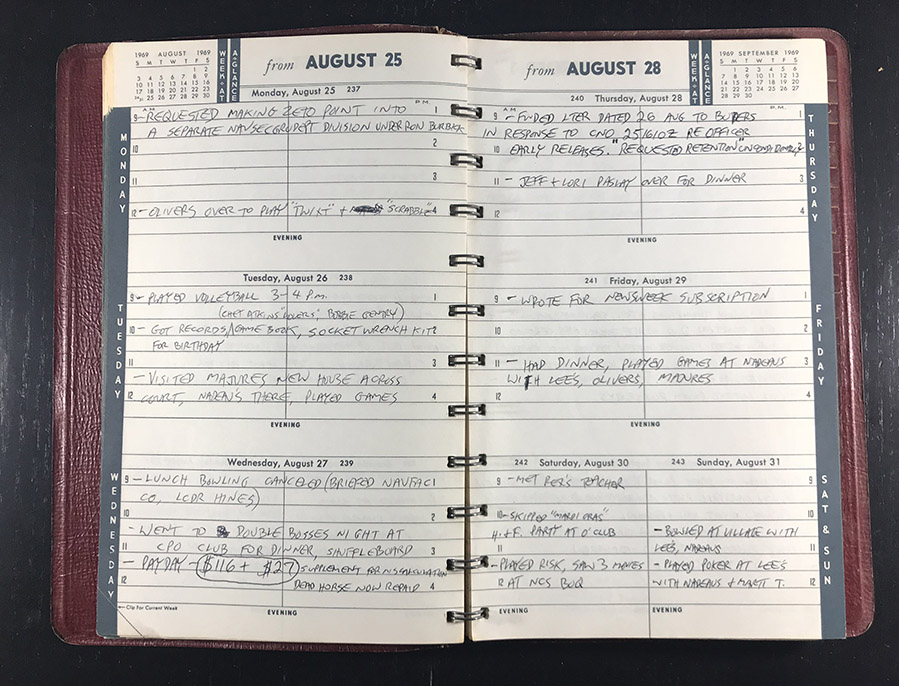 1969 AUGUST 1969
S M T W T F S
1 2
3 4 5 6 7 8 9
10 11 12 13 14 15 16
17 18 19 20 21 22 23
25 26 27 28 29 30
WEEK-AT
A-GLANCE
from AUGUST 25
Monday, August 25 237
A M
P. M.
MONDAY
9 - REQUESTED MAKING ZETO POINT INTO 1
A SEPARATE NAVSECGRUDEPT DIVISION UNDER RON BURBACK
10 2
11 3
12 - OLIVERS OVER TO PLAY "TWIXT" + "SCRABBLE" 4
EVENING
Tuesday, August 26 238
TUESDAY
9 - PLAYED VOLLEYBALL 3-4 P.M. 1
(CHET ATKINS, BOBBIE GENTRY)
10 - GOT RECORDS, GAME BOOK, SOCKET WRENCH KIT 2
FOR BIRTHDAY
11 3
- VISITED MAJURES NEW HOUSE ACROSS
12 COURT, NADEAUS THERE, PLAYED GAMES 4
EVENING
Wednesday, August 27 239
WEDNESDAY
9 - LUNCH BOWLING CANCELED (BRIEFED NAVFACI
CO, LCDR HINES)
10 2
- WENT TO DOUBLE BOSSES NIGHT AT
11 CPO CLUB FOR DINNER, SHUFFLEBOARD 3
- PAYDAY - $116 + $27 SUPPLEMENT FOR MISCALCULATION
12 DEAD HORSE NOW REPAID 4
← Clip For Current Week
EVENING
from AUGUST 28
WEEK-AT
A-GLANCE
1969 SEPTEMBER 1969
S M T W T F S
1 2 3 4 5 6
7 8 9 10 11 12 13
14 15 16 17 18 19 20
21 22 23 24 25 26 27
28 29 30
240 Thursday, August 28
A M
P. M.
THURSDAY
9 - LTER DATED 26 AUG TO BUPERS 1
IN RESPONSE TO CNO 251610Z RE OFFICER
10 EARLY RELEASES. "REQUESTED RETENTION" 2
11 - JEFF + LORI PASLAY OVER FOR DINNER 3
12 4
EVENING
241 Friday, August 29
FRIDAY
9 - WROTE FOR NEWSWEEK SUBSCRIPTION 1
10 2
11 - HAD DINNER, PLAYED GAMES AT NADEAUS 3
WITH LEES, OLIVERS, MAJURES
12 4
EVENING
242 Saturday, August 30
9 - MET PER'S TEACHER
10 - SKIPPED "MARDI GRAS"
H.+F. PARTY AT O'CLUB
11
- PLAYED RISK, SAW 3 MOVIES
12 AT NCS BOQ
EVENING
243 Sunday, August 31
- BOWLED AT VILLATE WITH
LEES, NADEAUS
- PLAYED POKER AT LEES
WITH NADEAUS + MARTI T.
EVENING
SAT & SUN